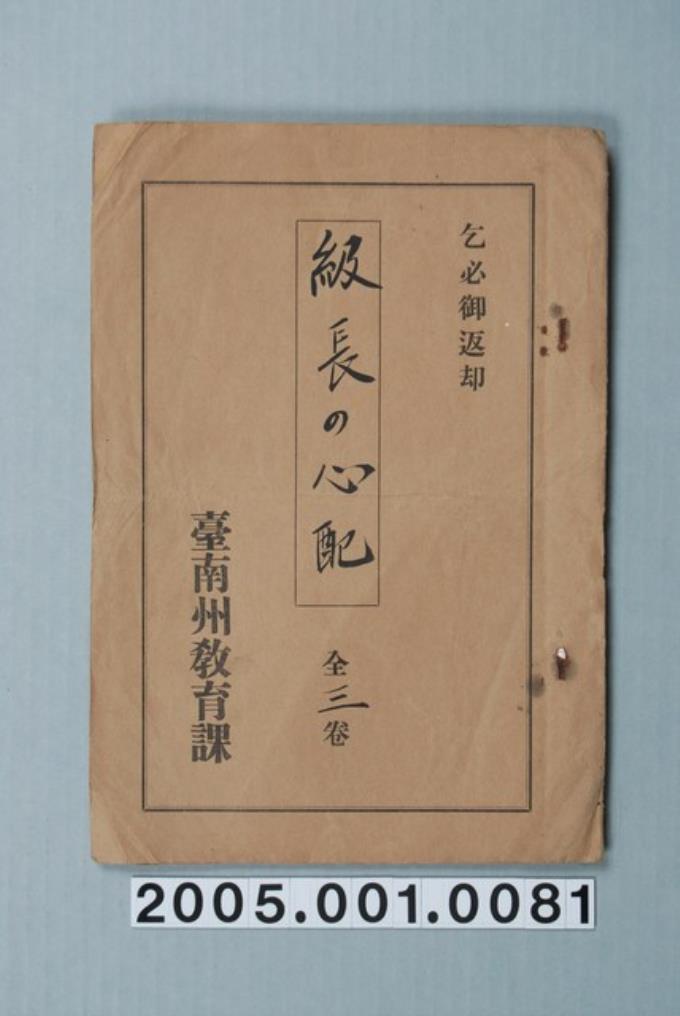 乞必御返却
級長の心配
全三卷
臺南州教育課
2005.001.0081